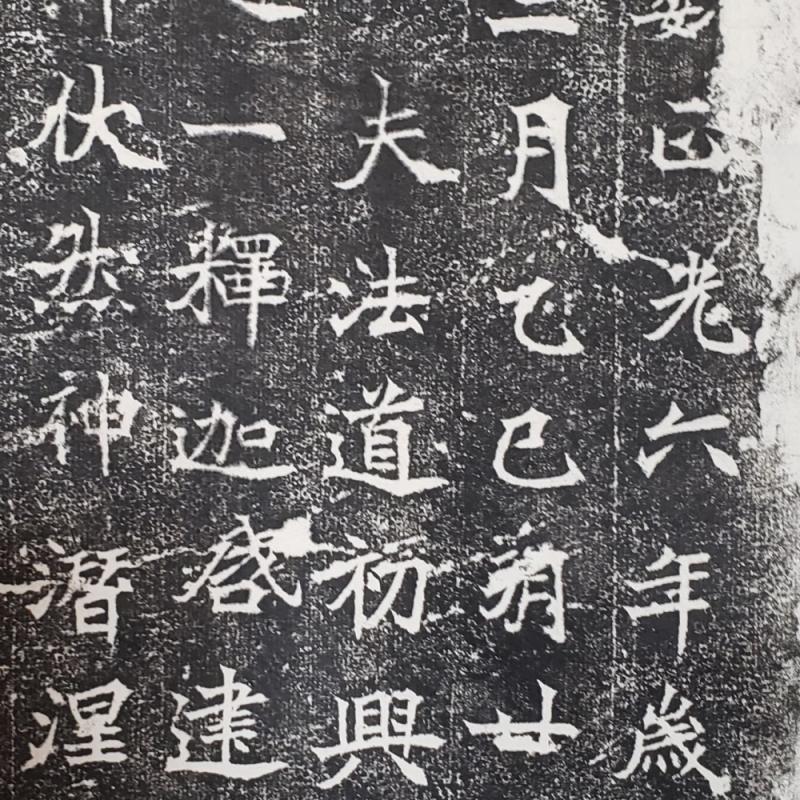 正光六年歲
二月乙巳朔廿
夫法道初興
一釋迦啓建
然神潛涅